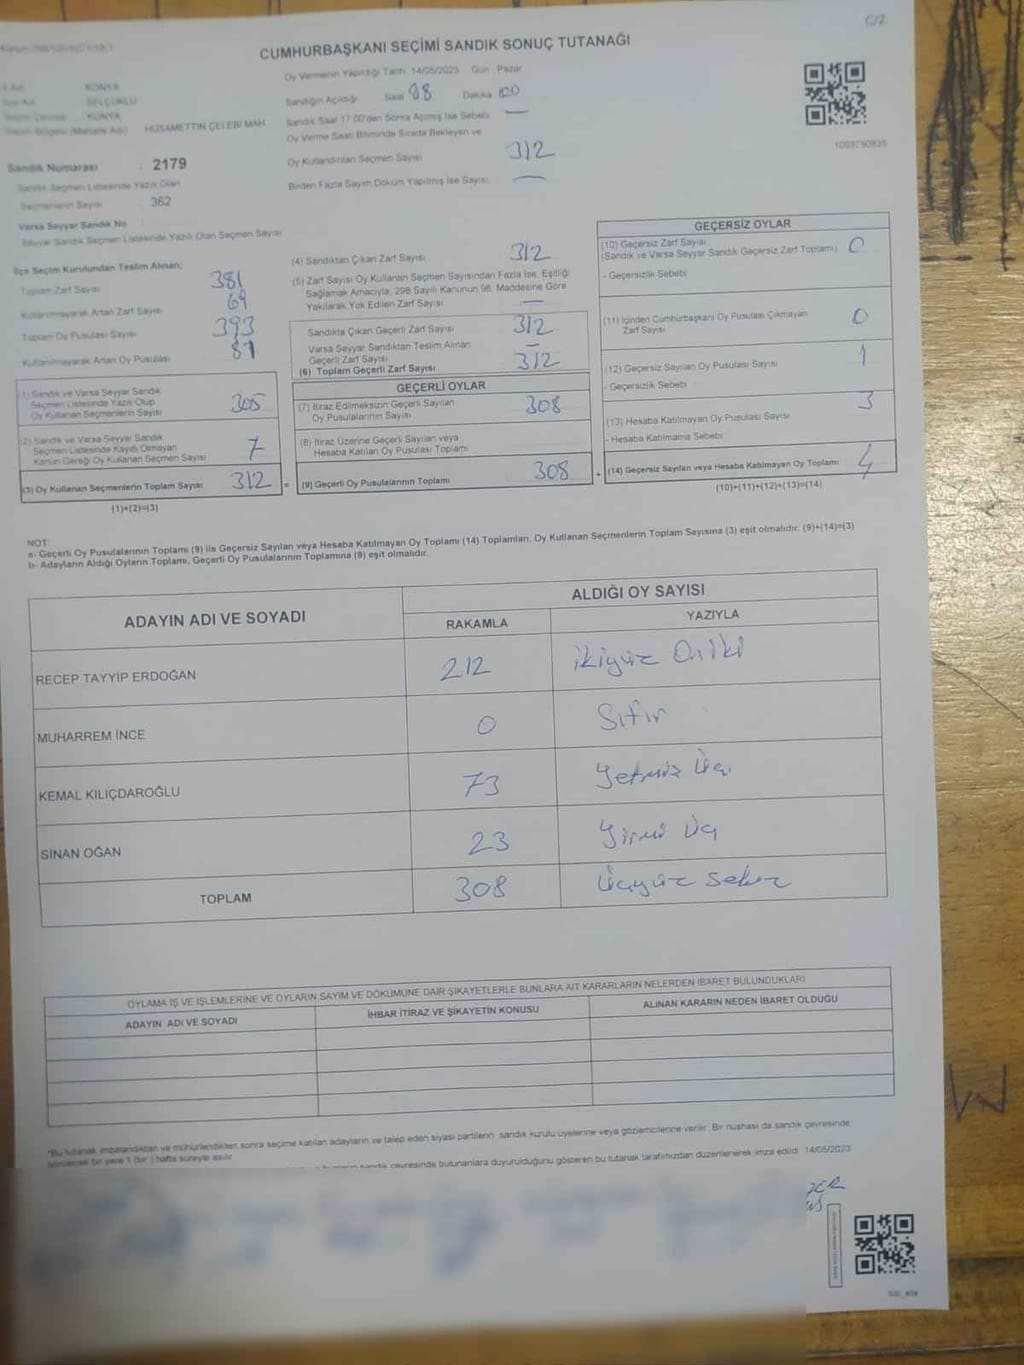 C/2
CUMHURBAŞKANI SEÇİMİ SANDIK SONUÇ TUTANAĞI
Oy Vermenin Yapıldığı Tarih 14/05/2023 Gün : Pazar
KONYA
Sandığın Açıldığı Saat 08 Dakika 00
SELÇUKLU
KONYA
Sandık Saat 17.00'den Sonra Açılmış İse Sebebi
HÜSAMETTİN ÇELEBİ MAH.
Oy Verme Saati Bitiminde Sırada Bekleyen ve
Oy Kullandırılan Seçmen Sayısı 312
Birden Fazla Sayım Döküm Yapılmış İse Sayısı
1003790835
Sandık Numarası : 2179
Sandık Seçmen Listesinde Yazılı Olan
Seçmenlerin Sayısı : 362
Varsa Seyyar Sandık No
Seyyar Sandık Seçmen Listesinde Yazılı Olan Seçmen Sayısı
İlçe Seçim Kurulundan Teslim Alınan;
Toplam Zarf Sayısı 381
Kullanılmayarak Artan Zarf Sayısı 69
Toplam Oy Pusulası Sayısı 393
Kullanılmayarak Artan Oy Pusulası 81
(1) Sandık ve Varsa Seyyar Sandık
Seçmen Listesinde Yazılı Olup
Oy Kullanan Seçmenlerin Sayısı 305
(2) Sandık ve Varsa Seyyar Sandık
Seçmen Listesinde Kayıtlı Olmayan
Kanun Gereği Oy Kullanan Seçmen Sayısı 7
(3) Oy Kullanan Seçmenlerin Toplam Sayısı 312 =
(1)+(2)=(3)
(4) Sandıktan Çıkan Zarf Sayısı 312
(5) Zarf Sayısı Oy Kullanan Seçmen Sayısından Fazla İse, Eşitliği
Sağlamak Amacıyla, 298 Sayılı Kanunun 98. Maddesine Göre
Yakılarak Yok Edilen Zarf Sayısı
Sandıkta Çıkan Geçerli Zarf Sayısı 312
Varsa Seyyar Sandıktan Teslim Alınan
Geçerli Zarf Sayısı
(6) Toplam Geçerli Zarf Sayısı 312
GEÇERLİ OYLAR
(7) İtiraz Edilmeksizin Geçerli Sayılan
Oy Pusulalarının Sayısı 308
(8) İtiraz Üzerine Geçerli Sayılan veya
Hesaba Katılan Oy Pusulası Toplamı
(9) Geçerli Oy Pusulalarının Toplamı 308 +
GEÇERSİZ OYLAR
(10) Geçersiz Zarf Sayısı
(Sandık ve Varsa Seyyar Sandık Geçersiz Zarf Toplamı) 0
- Geçersizlik Sebebi
(11) İçinden Cumhurbaşkanı Oy Pusulası Çıkmayan
Zarf Sayısı 0
(12) Geçersiz Sayılan Oy Pusulası Sayısı 1
- Geçersizlik Sebebi
(13) Hesaba Katılmayan Oy Pusulası Sayısı 3
- Hesaba Katılmama Sebebi
(14) Geçersiz Sayılan veya Hesaba Katılmayan Oy Toplamı 4
(10)+(11)+(12)+(13)=(14)
NOT:
a- Geçerli Oy Pusulalarının Toplamı (9) ile Geçersiz Sayılan veya Hesaba Katılmayan Oy Toplamı (14) Toplamları, Oy Kullanan Seçmenlerin Toplam Sayısına (3) eşit olmalıdır. (9)+(14)=(3)
b- Adayların Aldığı Oyların Toplamı, Geçerli Oy Pusulalarının Toplamına (9) eşit olmalıdır.
ADAYIN ADI VE SOYADI
ALDIĞI OY SAYISI
RAKAMLA YAZIYLA
RECEP TAYYİP ERDOĞAN 212 ikiyüz Oniki
MUHARREM İNCE 0 Sıfır
KEMAL KILIÇDAROĞLU 73 Yetmiş Üç
SİNAN OĞAN 23 Yirmi Üç
TOPLAM 308 Üçyüz Sekiz
OYLAMA İŞ VE İŞLEMLERİNE VE OYLARIN SAYIM VE DÖKÜMÜNE DAİR ŞİKAYETLERLE BUNLARA AİT KARARLARIN NELERDEN İBARET BULUNDUKLARI
ADAYIN ADI VE SOYADI İHBAR İTİRAZ VE ŞİKAYETİN KONUSU ALINAN KARARIN NEDEN İBARET OLDUĞU
*Bu tutanak imzalandıktan ve mühürlendikten sonra seçime katılan adayların ve talep eden siyasi partilerin sandık kurulu üyelerine veya gözlemcilerine verilir. Bir nüshası da sandık çevresinde
görülecek bir yere 1 (bir) hafta süreyle asılır.
sandık çevresinde bulunanlara duyurulduğunu gösteren bu tutanak tarafımızdan düzenlenerek imza edildi. 14/05/2023